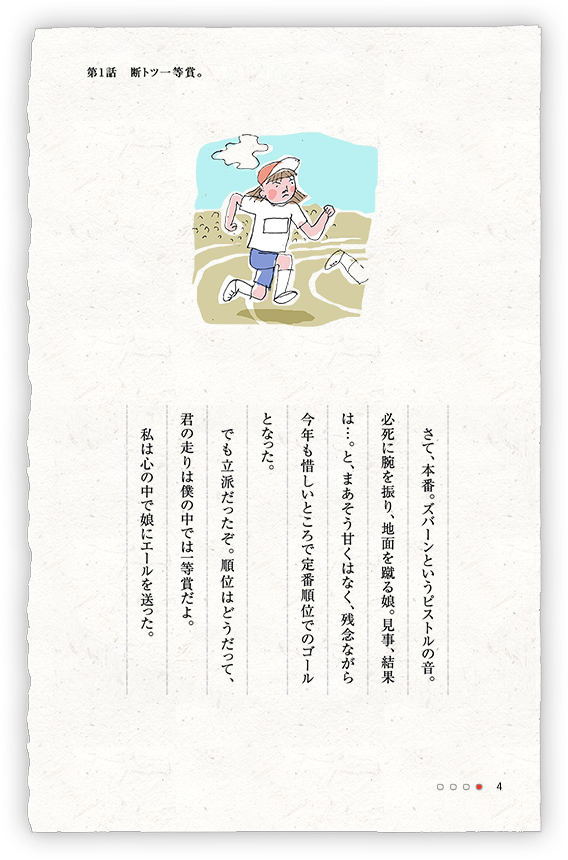 第1話　断トツ一等賞。
さて、本番。ズバーンというピストルの音。
必死に腕を振り、地面を蹴る娘。見事、結果
は…。と、まあそう甘くはなく、残念ながら
今年も惜しいところで定番順位でのゴール
となった。
でも立派だったぞ。順位はどうだって、
君の走りは僕の中では一等賞だよ。
私は心の中で娘にエールを送った。
4